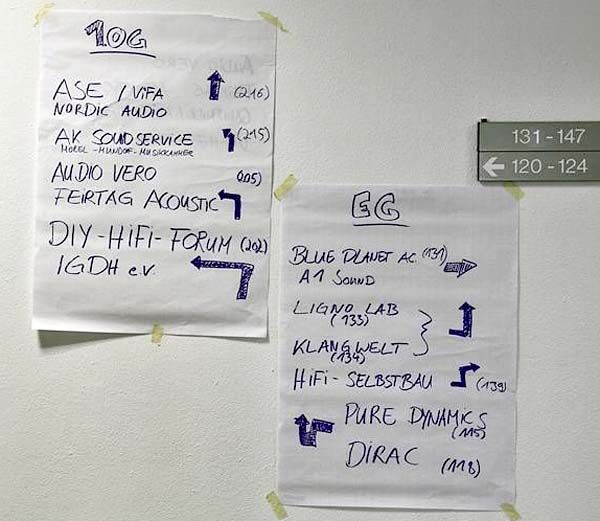 1OG
ASE / ViFA (216)
NORDIC AUDIO
AK SOUNDSERVICE (215)
MOREL - MUNDORF - MUSIKKAMMER
AUDIO VERO 205)
FEIRTAG ACOUSTIC
DIY-HiFi-FORUM (202)
IGDH e.V.
131 - 147
120 - 124
EG
BLUE PLANET AC. (131)
A1 SOUND
LIGNO LAB
(133)
KLANGWELT
(134)
HiFi - SELBSTBAU (139)
PURE DYNAMICS
(115)
DIRAC (118)